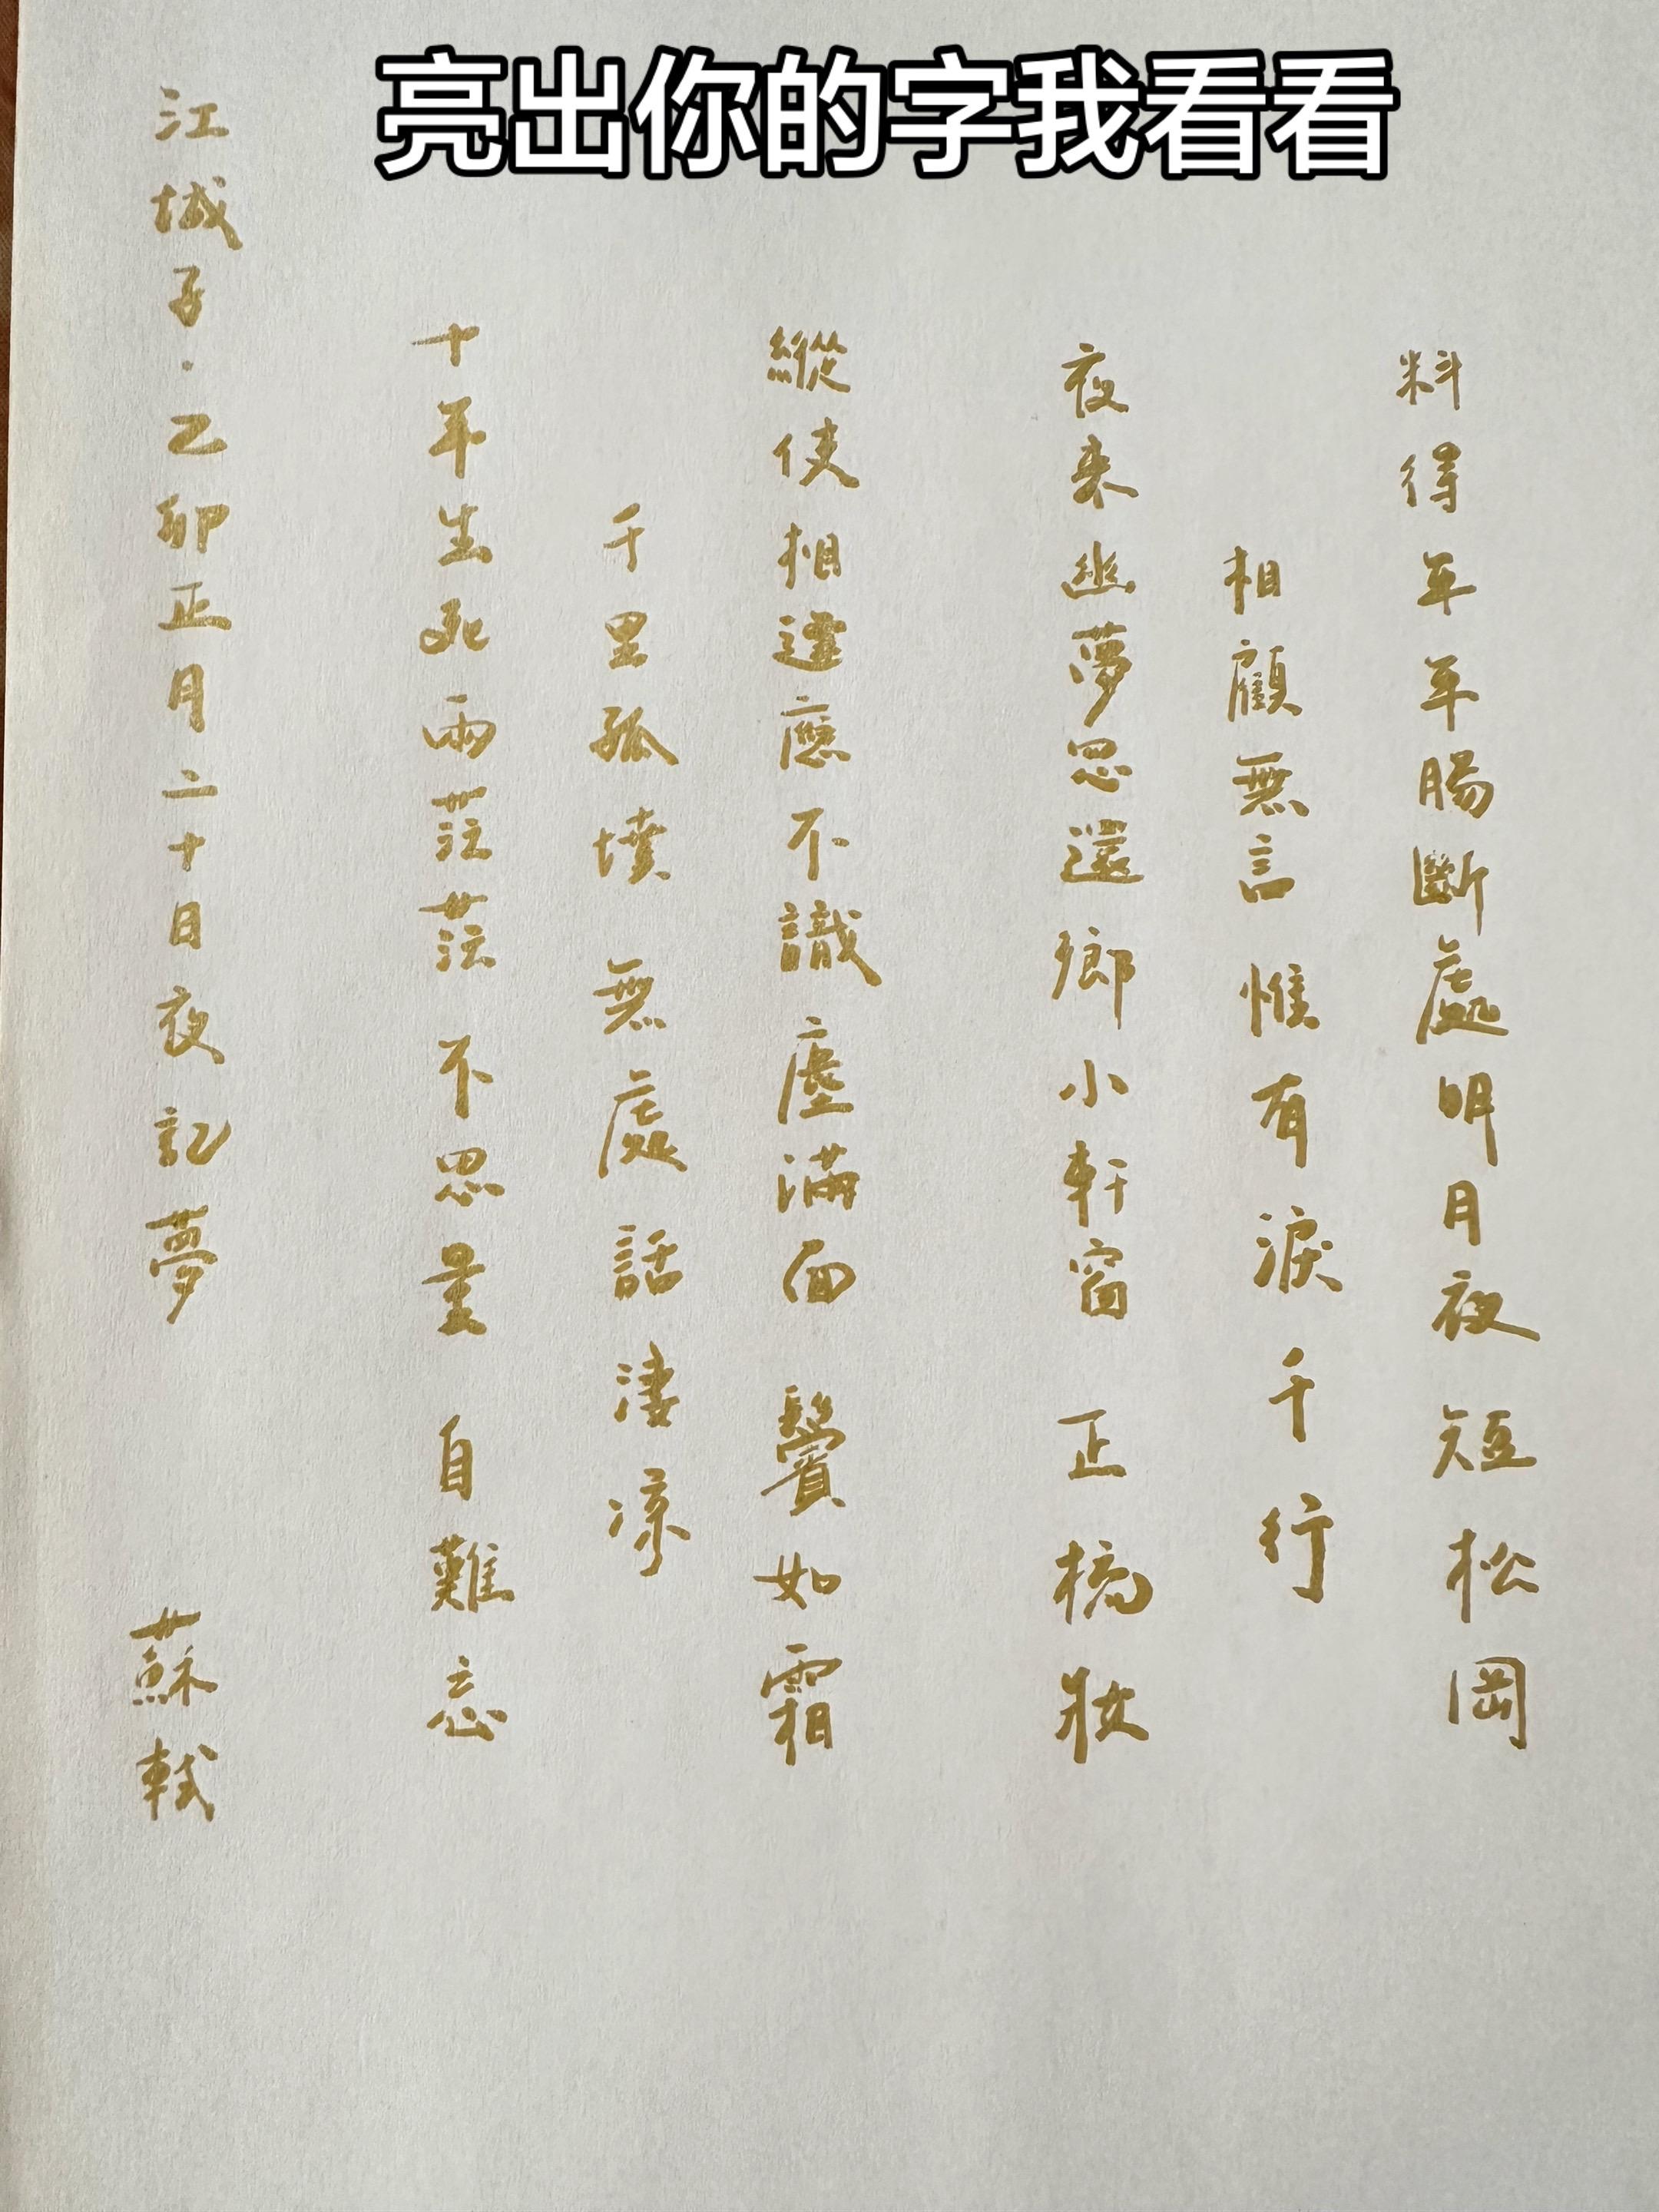 亮出你的字我看看
江城子·乙卯正月二十日夜記夢 蘇軾
十年生死兩茫茫 不思量 自難忘
千里孤墳 無處話淒涼
縱使相逢應不識 塵滿面 鬢如霜
夜來幽夢忽還鄉 小軒窗 正梳妝
相顧無言 惟有淚千行
料得年年腸斷處 明月夜 短松岡